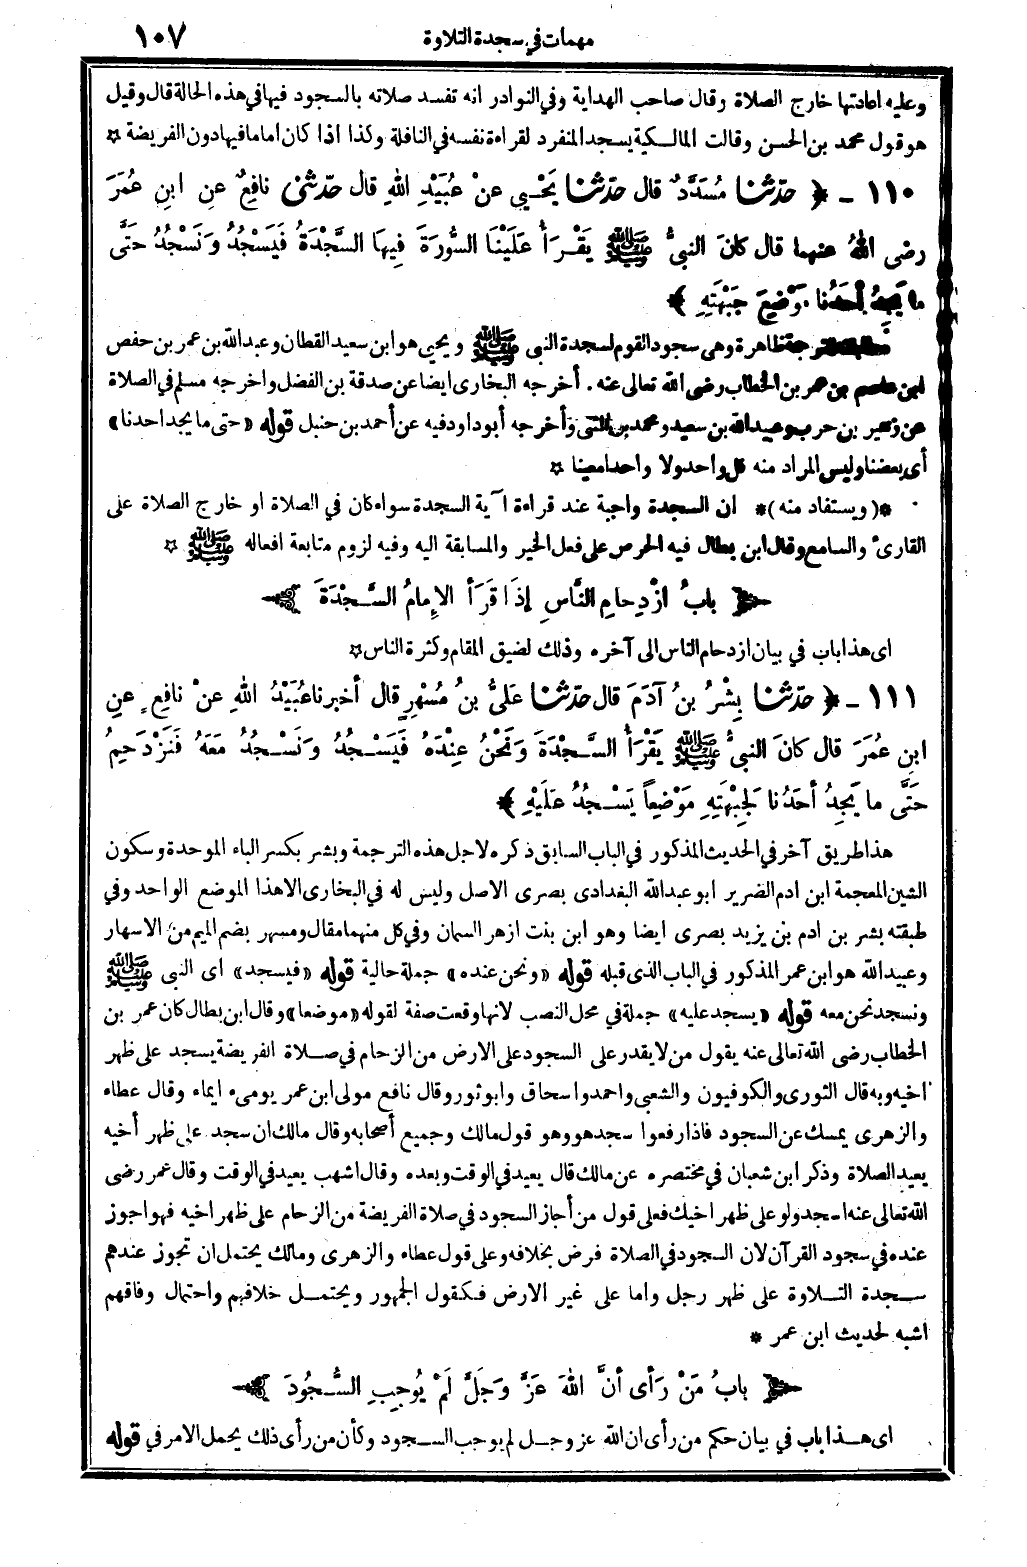 مهمات في سجدة التلاوة ١٠٧
وعليه اعادتها خارج الصلاة وقال صاحب الهداية وفي النوادر انه تفسد صلاته بالسجود فيها في هذه الحالة قال وقيل
هو قول محمد بن الحسن وقالت المالكية يسجد المنفرد لقراءة نفسه في النافلة وكذا اذا كان اماما فيها دون الفريضة ☆
١١٠ - ﴿ حَدَّثَنَا مُسَدَّدٌ قال حَدَّثَنَا يَحْيى عنْ عُبَيْدِ اللهِ قال حَدَّثَنِي نافِعٌ عنِ ابنِ عُمَرَ
رضى اللهُ عنهما قال كانَ النبيُّ ﷺ يَقْرَأُ عَلَيْنَا السُّورَةَ فِيهَا السَّجْدَةُ فَيَسْجُدُ ونَسْجُدُ حَتَّى
ما يَجِدُ أحَدُنا مَوْضِعَ جَبْهَتِهِ ﴾
مطابقته للترجمة ظاهرة وهي سجود القوم لسجدة النبي ﷺ ويحيى هو ابن سعيد القطان وعبد الله بن عمر بن حفص
ابن عاصم بن عمر بن الخطاب رضى الله تعالى عنه . أخرجه البخارى ايضا عن صدقة بن الفضل واخرجه مسلم في الصلاة
عن زهير بن حرب وعبيد الله بن سعيد ومحمد بن المثنى وأخرجه أبو داود فيه عن أحمد بن حنبل قوله «حتى ما يجد احدنا»
أى بعضنا وليس المراد منه كل واحد ولا واحد امعينا ☆
*( ويستفاد منه )* ان السجدة واجبة عند قراءة آية السجدة سواء كان في الصلاة او خارج الصلاة على
القارئ والسامع وقال ابن بطال فيه الحرص على فعل الخير والمسابقة اليه وفيه لزوم متابعة افعاله ﷺ ☆
﴿ بابُ ازْدِحامِ النَّاسِ إذَا قَرَأَ الإِمامُ السَّجْدَةَ ﴾
اى هذا باب في بيان ازدحام الناس الى آخره وذلك لضيق المقام وكثرة الناس ☆
١١١ - ﴿ حَدَّثَنَا بِشْرُ بنُ آدَمَ قال حَدَّثَنَا عَلىُّ بنُ مُسْهِرٍ قال أخبرنا عُبَيْدُ اللهِ عنْ نافِعٍ عنِ
ابنِ عُمَرَ قال كانَ النبيُّ ﷺ يَقْرَأُ السَّجْدَةَ ونَحْنُ عِنْدَهُ فَيَسْجُدُ ونَسْجُدُ مَعَهُ فَنَزْدَحِمُ
حَتَّى ما يَجِدُ أحَدُنا لِجَبْهَتِهِ مَوْضِعاً يَسْجُدُ عَلَيْهِ ﴾
هذا طريق آخر في الحديث المذكور في الباب السابق ذكره لاجل هذه الترجمة وبشر بكسر الباء الموحدة وسكون
الشين المعجمة ابن ادم الضرير ابو عبد الله البغدادى بصرى الاصل وليس له في البخارى الا هذا الموضع الواحد وفي
طبقته بشر بن ادم بن يزيد بصرى ايضا وهو ابن بنت ازهر السمان وفي كل منهما مقال ومسهر بضم الميم من الاسهار
وعبيد الله هو ابن عمر المذكور في الباب الذى قبله قوله «ونحن عنده» جملة حالية قوله «فيسجد» اى النبي ﷺ
ونسجد نحن معه قوله «يسجد عليه» جملة في محل النصب لانها وقعت صفة لقوله «موضعا» وقال ابن بطال كان عمر بن
الخطاب رضى الله تعالى عنه يقول من لا يقدر على السجود على الارض من الزحام في صلاة الفريضة يسجد على ظهر
اخيه وبه قال الثورى والكوفيون والشعبى واحمد واسحاق وابو ثور وقال نافع مولى ابن عمر يومىء ايماء وقال عطاء
والزهرى يمسك عن السجود فاذا رفعوا سجد هو وهو قول مالك وجميع أصحابه وقال مالك ان سجد على ظهر أخيه
يعيد الصلاة وذكر ابن شعبان في مختصره عن مالك قال يعيد في الوقت وبعده وقال اشهب يعيد في الوقت وقال عمر رضى
الله تعالى عنه اسجد ولو على ظهر اخيك فعلى قول من أجاز السجود في صلاة الفريضة من الزحام على ظهر اخيه فهو اجوز
عنده في سجود القرآن لان السجود في الصلاة فرض بخلافه وعلى قول عطاء والزهرى ومالك يحتمل ان تجوز عندهم
سجدة التلاوة على ظهر رجل واما على غير الارض فكقول الجمهور ويحتمل خلافهم واحتمال وفاقهم
اشبه لحديث ابن عمر *
﴿ بابُ مَنْ رَأى أنَّ اللهَ عَزَّ وَجَلَّ لَمْ يُوجِبِ السُّجُودَ ﴾
اى هذا باب في بيان حكم من رأى ان الله عز وجل لم يوجب السجود وكأن من رأى ذلك يحمل الامر في قوله